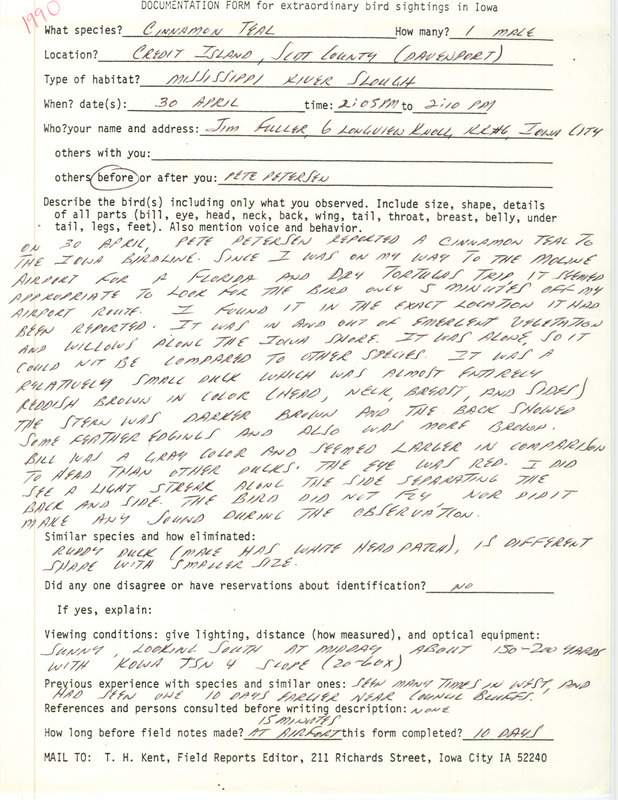 1990
DOCUMENTATION FORM for extraordinary bird sightings in Iowa
What species? CINNAMON TEAL How many? 1 MALE
Location? CREDIT ISLAND, SCOTT COUNTY (DAVENPORT)
Type of habitat? MISSISSIPPI RIVER SLOUGH
When? date(s): 30 APRIL time: 2:05 PM to 2:10 PM
Who?your name and address: JIM FULLER, 6 LONGVIEW KNOLL, RR#6, IOWA CITY
others with you:
others before or after you: PETE PETERSEN
Describe the bird(s) including only what you observed. Include size, shape, details
of all parts (bill, eye, head, neck, back, wing, tail, throat, breast, belly, under
tail, legs, feet). Also mention voice and behavior.
ON 30 APRIL, PETE PETERSEN REPORTED A CINNAMON TEAL TO
THE IOWA BIRDLINE. SINCE I WAS ON MY WAY TO THE MOLINE
AIRPORT FOR A FLORIDA AND DRY TORTUGAS TRIP, IT SEEMED
APPROPRIATE TO LOOK FOR THE BIRD ONLY 5 MINUTES OFF MY
AIRPORT ROUTE. I FOUND IT IN THE EXACT LOCATION IT HAD
BEEN REPORTED. IT WAS IN AND OUT OF EMERGENT VEGETATION
AND WILLOWS ALONG THE IOWA SHORE. IT WAS ALONE, SO IT
COULD NOT BE COMPARED TO OTHER SPECIES. IT WAS A
RELATIVELY SMALL DUCK WHICH WAS ALMOST ENTIRELY
REDDISH BROWN IN COLOR (HEAD, NECK, BREAST, AND SIDES)
THE STERN WAS DARKER BROWN AND THE BACK SHOWED
SOME FEATHER EDGINGS AND ALSO WAS MORE BROWN.
BILL WAS A GRAY COLOR AND SEEMED LARGER IN COMPARISON
TO HEAD THAN OTHER DUCKS. THE EYE WAS RED. I DID
SEE A LIGHT STREAK ALONG THE SIDE SEPARATING THE
BACK AND SIDE. THE BIRD DID NOT FLY NOR DID IT
MAKE ANY SOUND DURING THE OBSERVATION.
Similar species and how eliminated:
RUDDY DUCK (MALE HAS WHITE HEAD PATCH), IS DIFFERENT
SHAPE WITH SMALLER SIZE.
Did any one disagree or have reservations about identification? NO
If yes, explain:
Viewing conditions: give lighting, distance (how measured), and optical equipment:
SUNNY, LOOKING SOUTH AT MIDDAY ABOUT 150-200 YARDS
WITH KOWA TSN 4 SCOPE (20-60X)
Previous experience with species and similar ones: SEEN MANY TIMES IN WEST, AND
HAD SEEN ONE 10 DAYS EARLIER NEAR COUNCIL BLUFFS.
References and persons consulted before writing description: NONE
15 MINUTES
How long before field notes made? AT AIRPORT this form completed? 10 DAYS
MAIL TO: T. H. Kent, Field Reports Editor, 211 Richards Street, Iowa City IA 52240